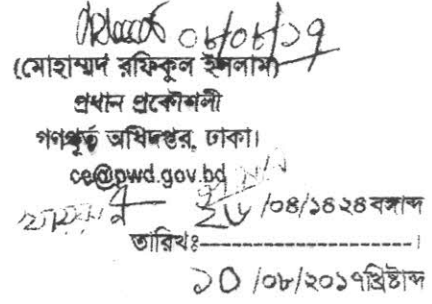 ০৮/০৮/১৭
(মোহাম্মদ রফিকুল ইসলাম)
প্রধান প্রকৌশলী
গণপূর্ত অধিদপ্তর, ঢাকা।
ce@pwd.gov.bd
২৬/০৪/১৪২৪ বঙ্গাব্দ
তারিখঃ-------------------।
১০/০৮/২০১৭খ্রিষ্টাব্দ